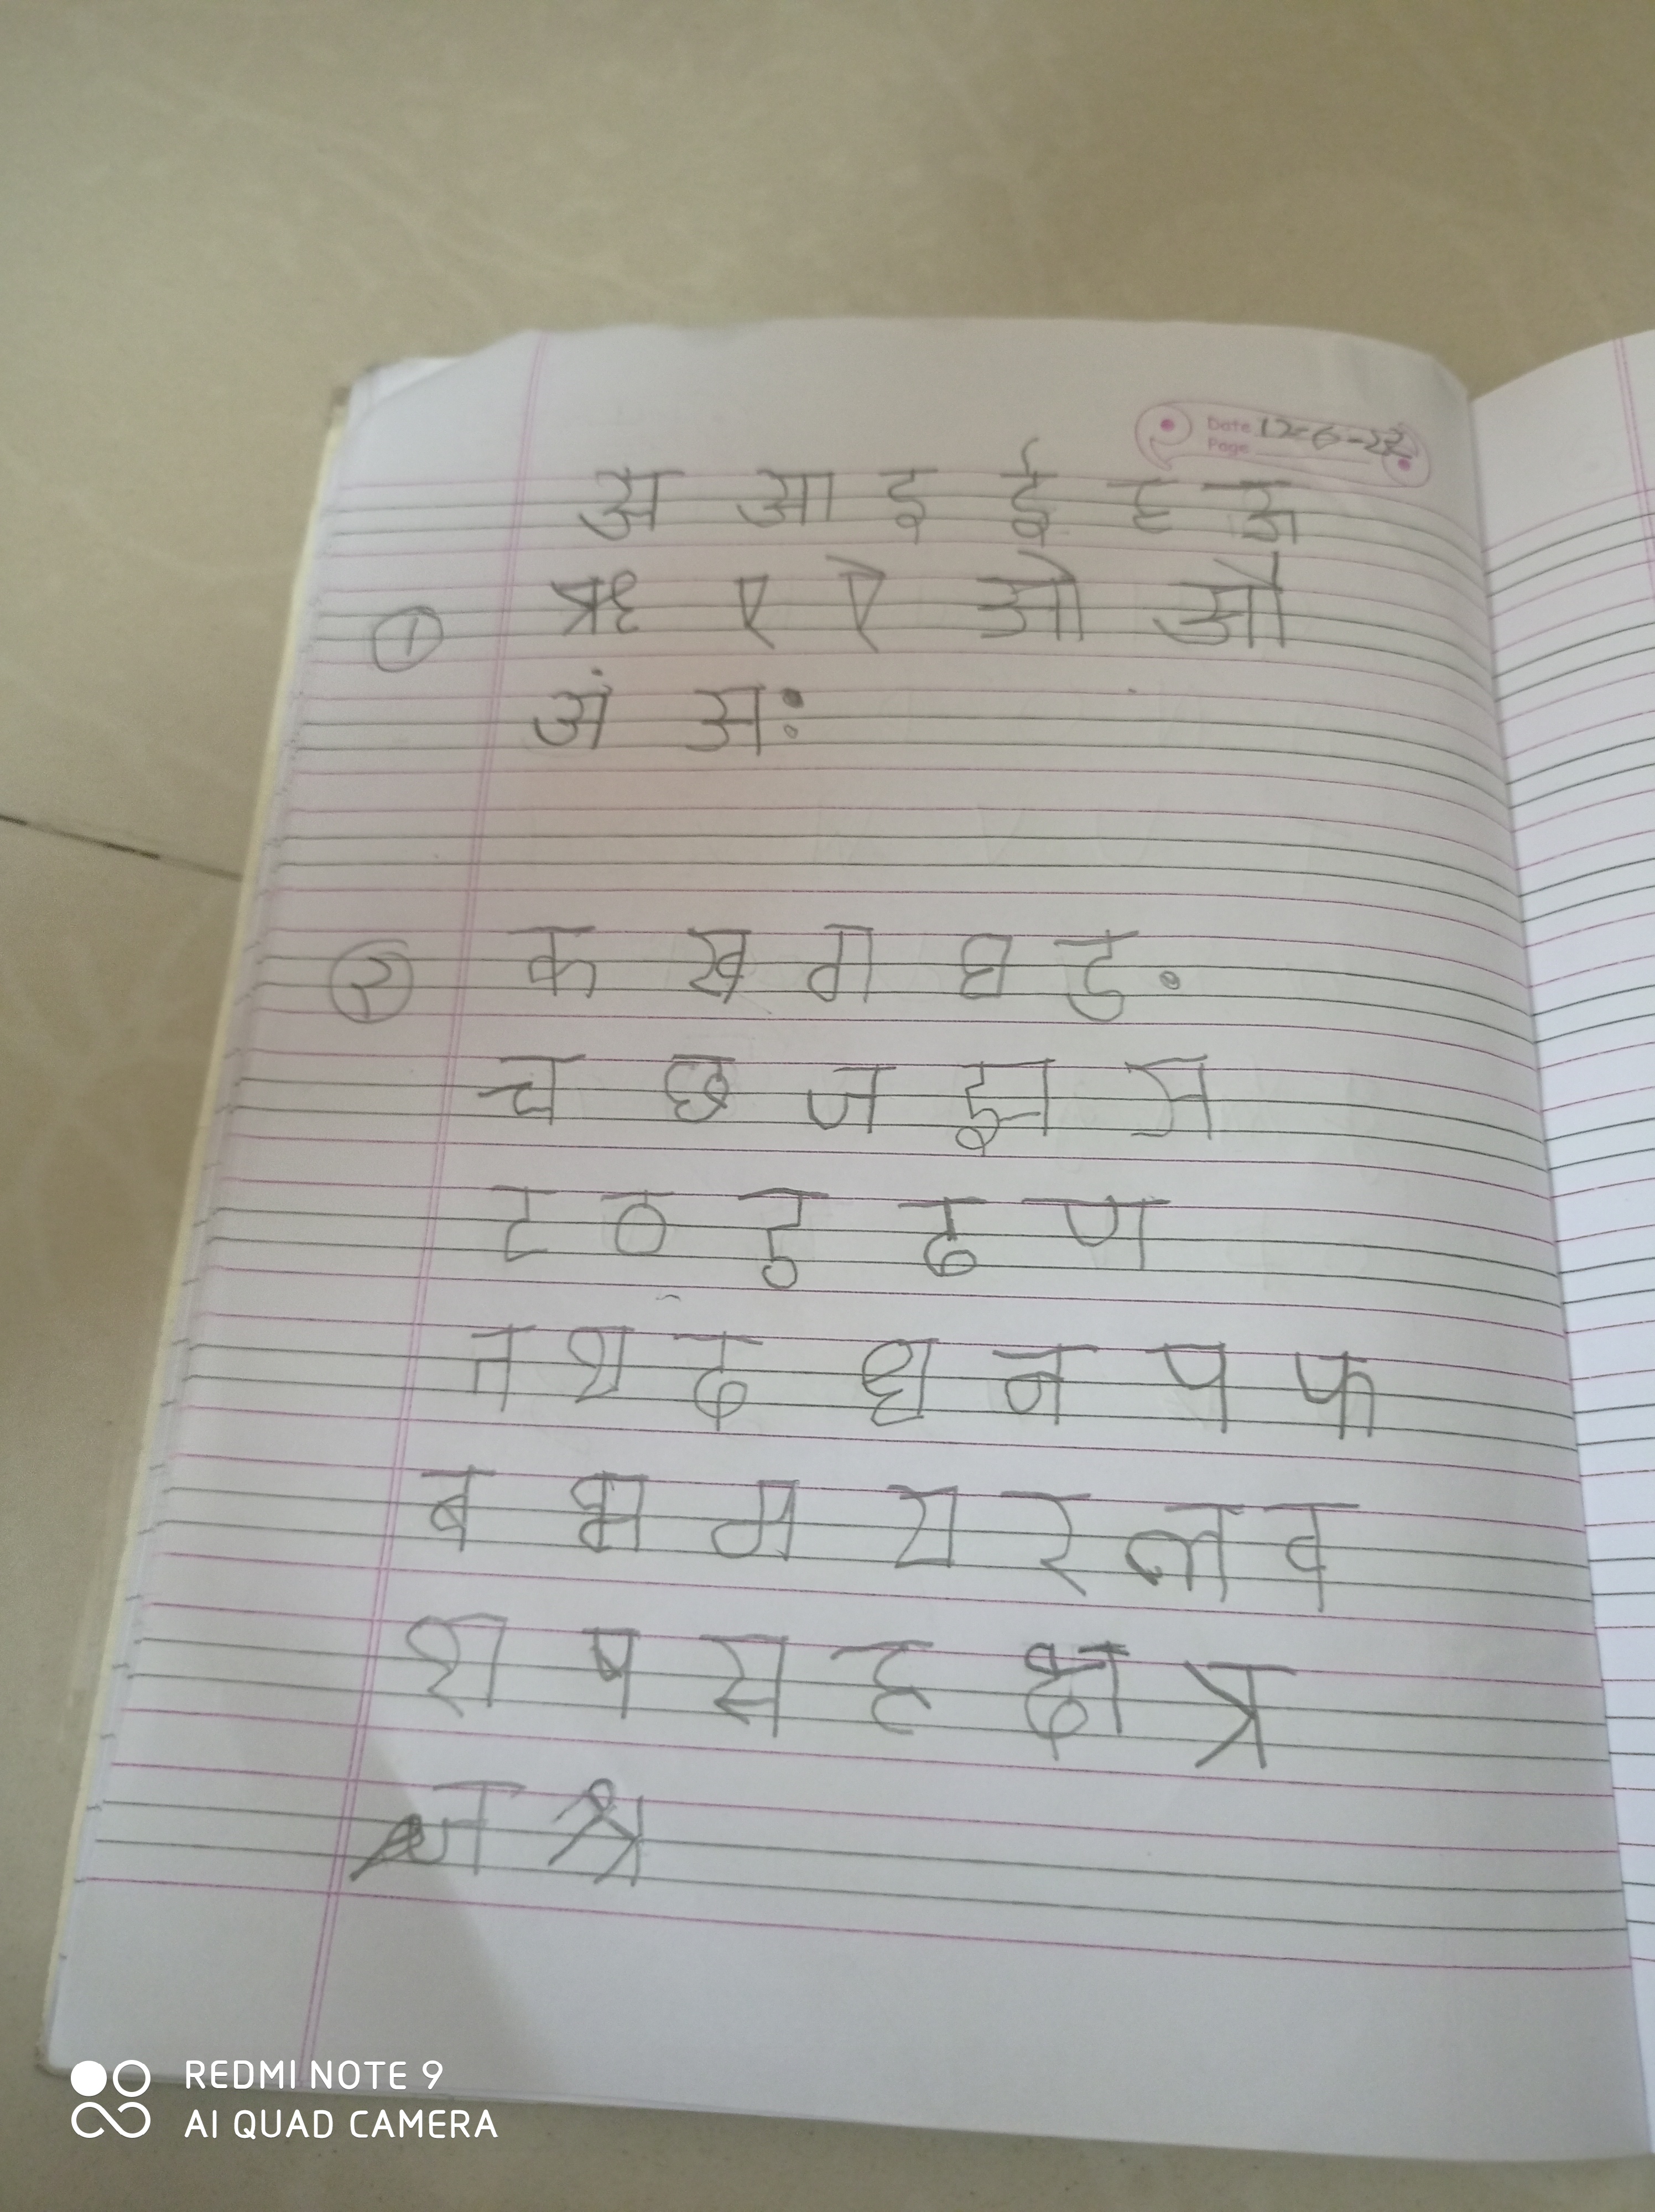 Date 12-6-22
Page
अ आ इ ई ह ऊ
① ऋ ए ऐ ओ औ
अं अः
② क ख ग घ ङ
च छ ज झ ञ
ट ठ ड ढ ण
त थ द ध न प फ
ब भ म य र ल व
श ष स ह क्ष त्र
ज्ञ श्र
REDMI NOTE 9
AI QUAD CAMERA